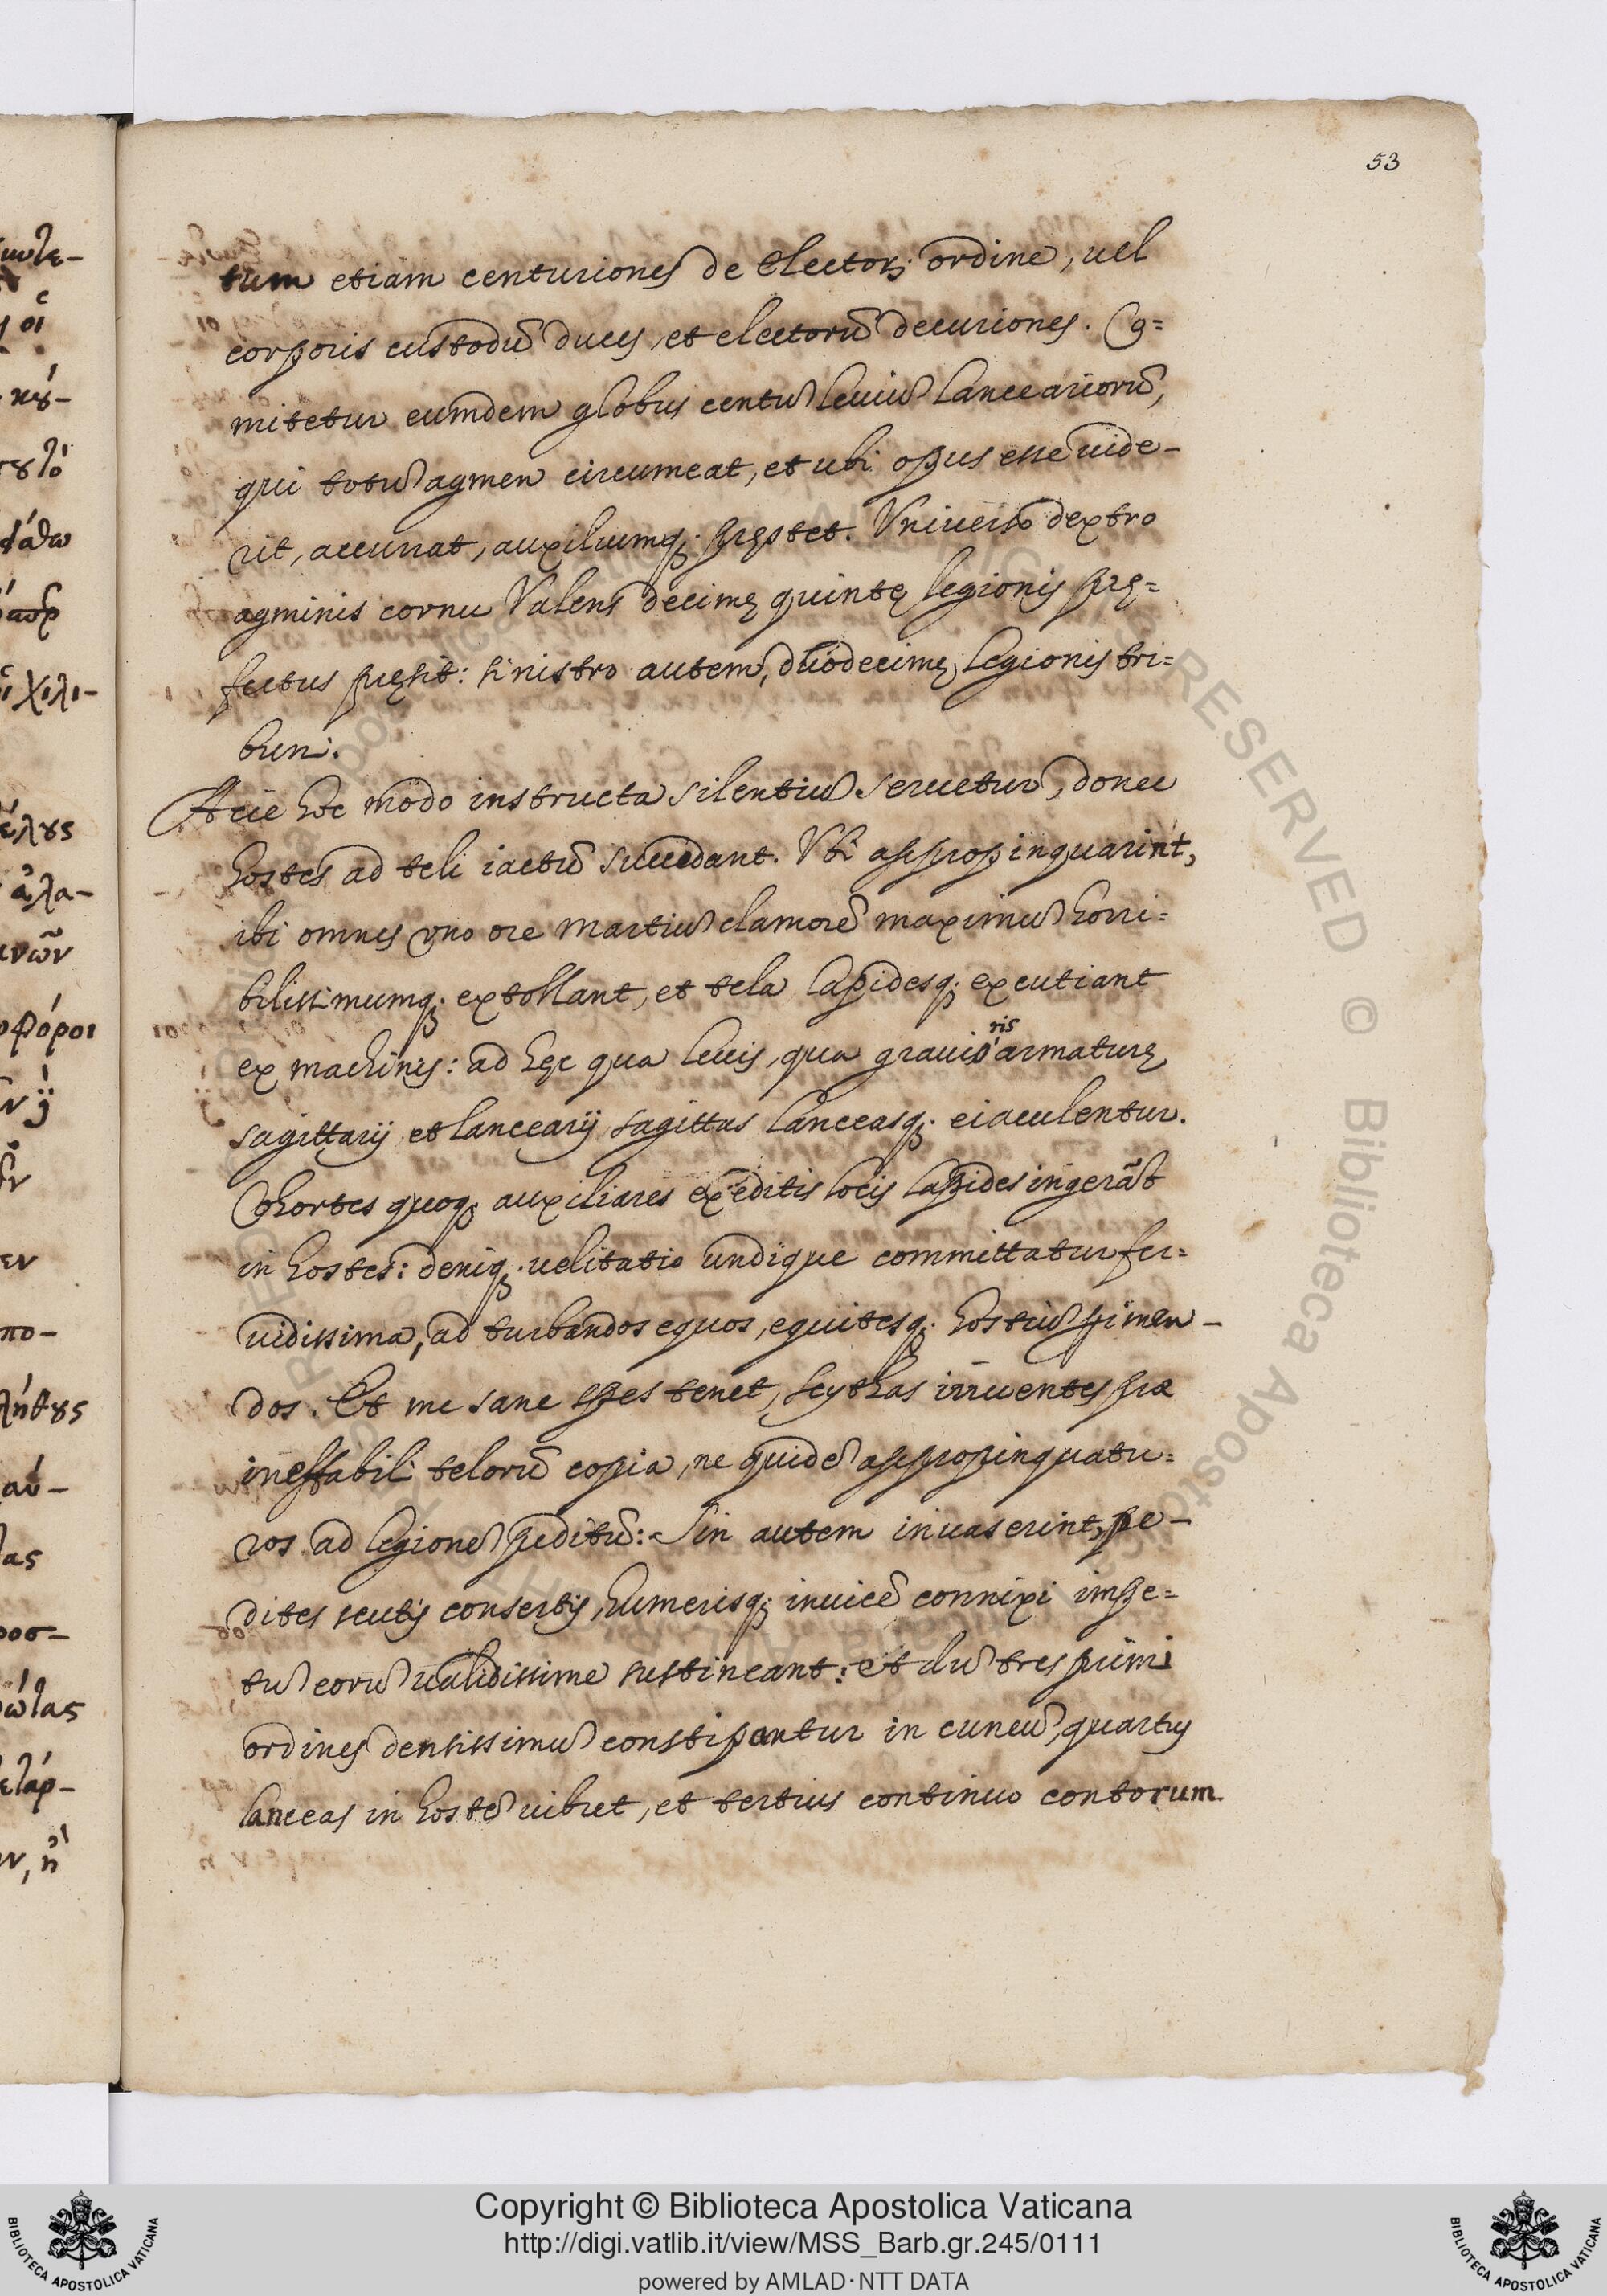 53
tum etiam centuriones de electorꝫ ordine, uel
corporis custodũ duces, et electorũ decuriones. Cõ=
mitetur eumdem globus centũ leuiũ lanceariorũ,
qui totũ agmen circumeat, et ubi opus esse uide-
rit, accurrat, auxiliumqꝫ pręstet. Vniuerso dextro
agminis cornu Valens decimę quintę legionis pRę=
fectus pręsit: sinistro autem, duodecimę legionis tri=
buni.
Acie hoc modo instructa silentiũ seruetur, donec
hostes ad teli iactũ succedant. Vbi appropinquarint,
ibi omnes uno ore martiũ clamorẽ maximũ horri=
bilissimumqꝫ extollant, et tela lapidesqꝫ excutiant
ex machinis: ad hęc qua leuis, qua grauioris armaturę
sagittarij et lancearij sagittas lanceasqꝫ eiaculentur.
Cohortes quoqꝫ auxiliares expeditis locis lapides ingerãt
in hostes: deniqꝫ uelitatio undique committatur fer=
uidissima, ad turbandos equos, equitesqꝫ hostiũ primen-
dos. Et me sane spes tenet, scythas irruentes prae
ineffabili telorũ copia, ne quidẽ appropinquatu=
ros ad legionẽ peditũ: Sin autem inuaserint, pe-
dites scutis consertis, humerisqꝫ inuicẽ connixi impe=
tũ eorũ ualidissime sustineant: et dũ tres primi
ordines densissimũ constipantur in cuneũ, quartus
lanceas in hostẽ uibret, et tertius continuo contorum
Copyright © Biblioteca Apostolica Vaticana
http://digi.vatlib.it/view/MSS_Barb.gr.245/0111
powered by AMLAD·NTT DATA